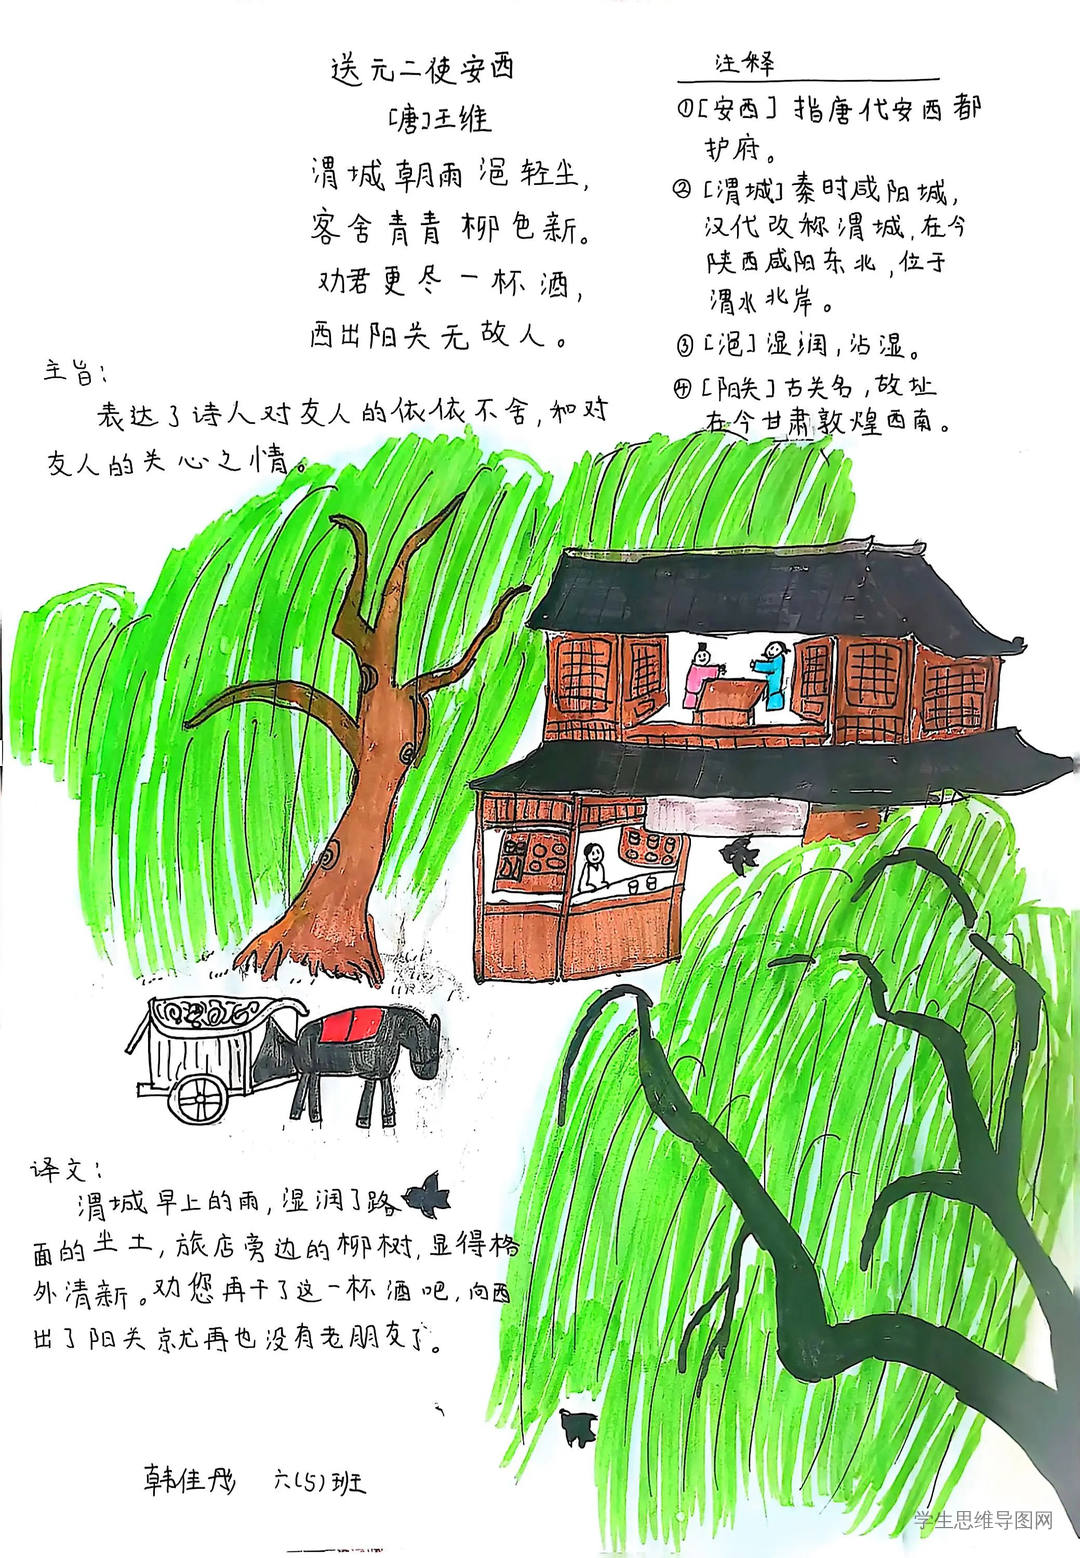 送元二使安西
[唐]王维
渭城朝雨浥轻尘,
客舍青青柳色新。
劝君更尽一杯酒,
西出阳关无故人。
注释
①[安西]指唐代安西都
护府。
②[渭城]秦时咸阳城,
汉代改称渭城,在今
陕西咸阳东北,位于
渭水北岸。
③[浥]湿润,沾湿。
④[阳关]古关名,故址
在今甘肃敦煌西南。
主旨:
表达了诗人对友人的依依不舍,和对
友人的关心之情。
译文:
渭城早上的雨,湿润了路
面的尘土,旅店旁边的柳树,显得格
外清新。劝您再干了这一杯酒吧,向西
出了阳关就再也没有老朋友了。
韩佳彤 六(5)班
学生思维导图网